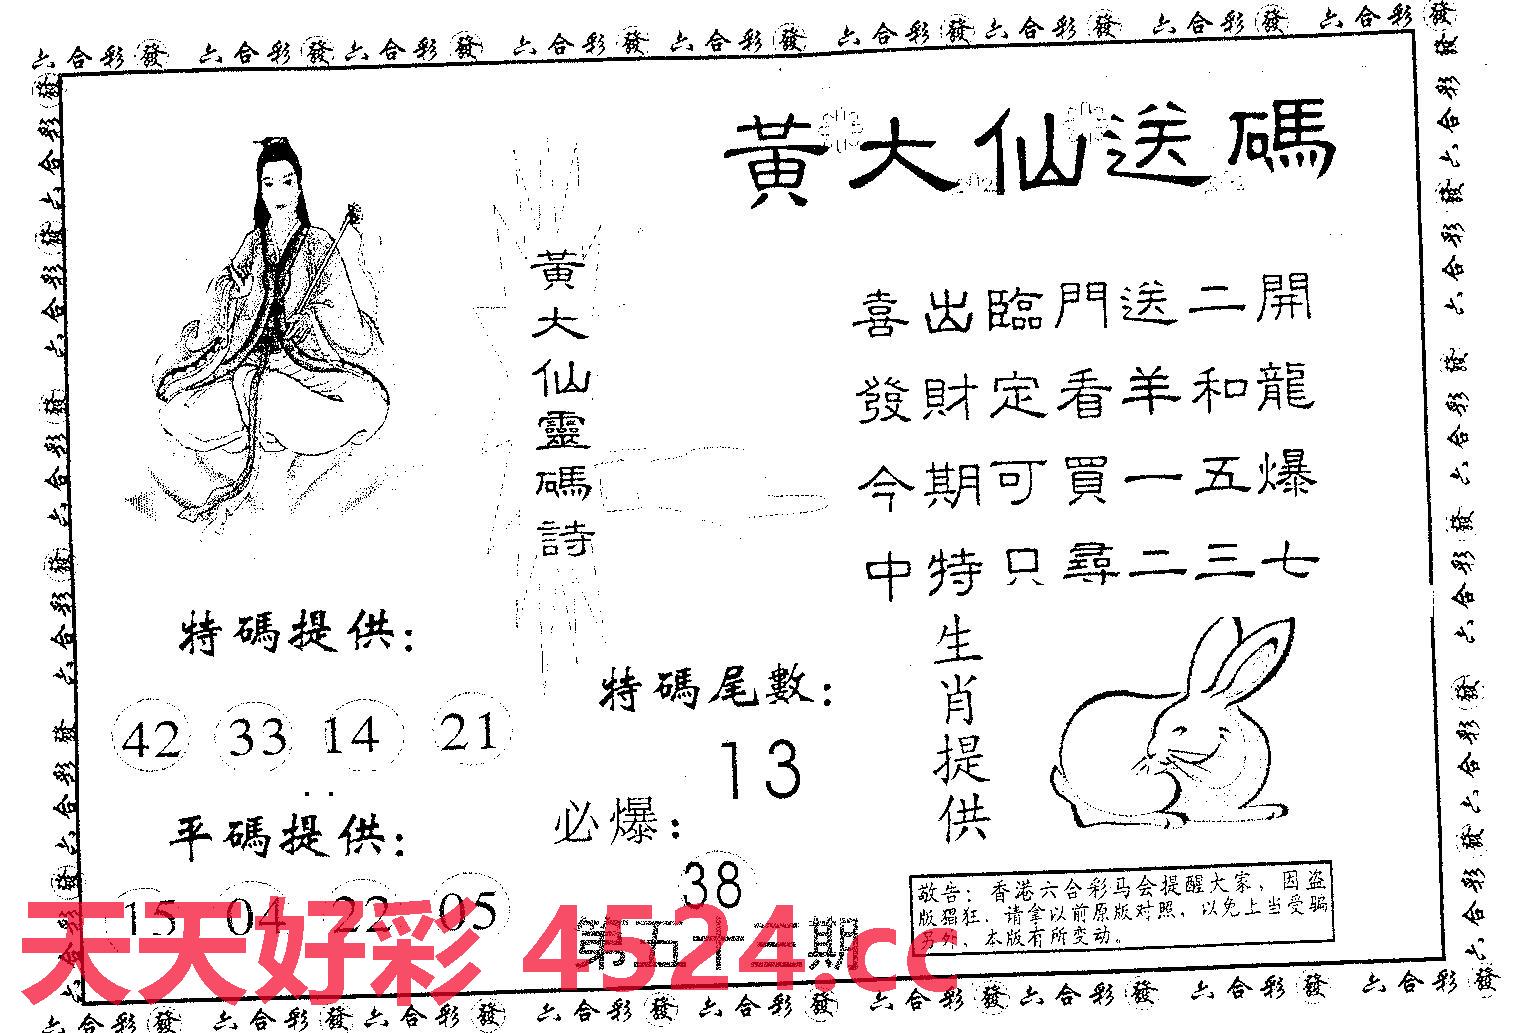 六合彩發 六合彩發 六合彩發 六合彩發 六合彩發 六合彩發 六合彩發 六合彩發 六合彩發
黃大仙送碼
黃大仙靈碼詩
喜出臨門送二開
發財定看羊和龍
今期可買一五爆
中特只尋二三七
特碼提供：
42 33 14 21
平碼提供：
15 04 22 05
特碼尾數：
13
必爆：
38
生肖提供
敬告：香港六合彩马会提醒大家，因盗
版猖狂，请拿以前原版对照，以免上当受骗
另外，本版有所变动。
第五十二期
天天好彩 4524.cc
六合彩發 六合彩發 六合彩發 六合彩發 六合彩發 六合彩發 六合彩發 六合彩發 六合彩發